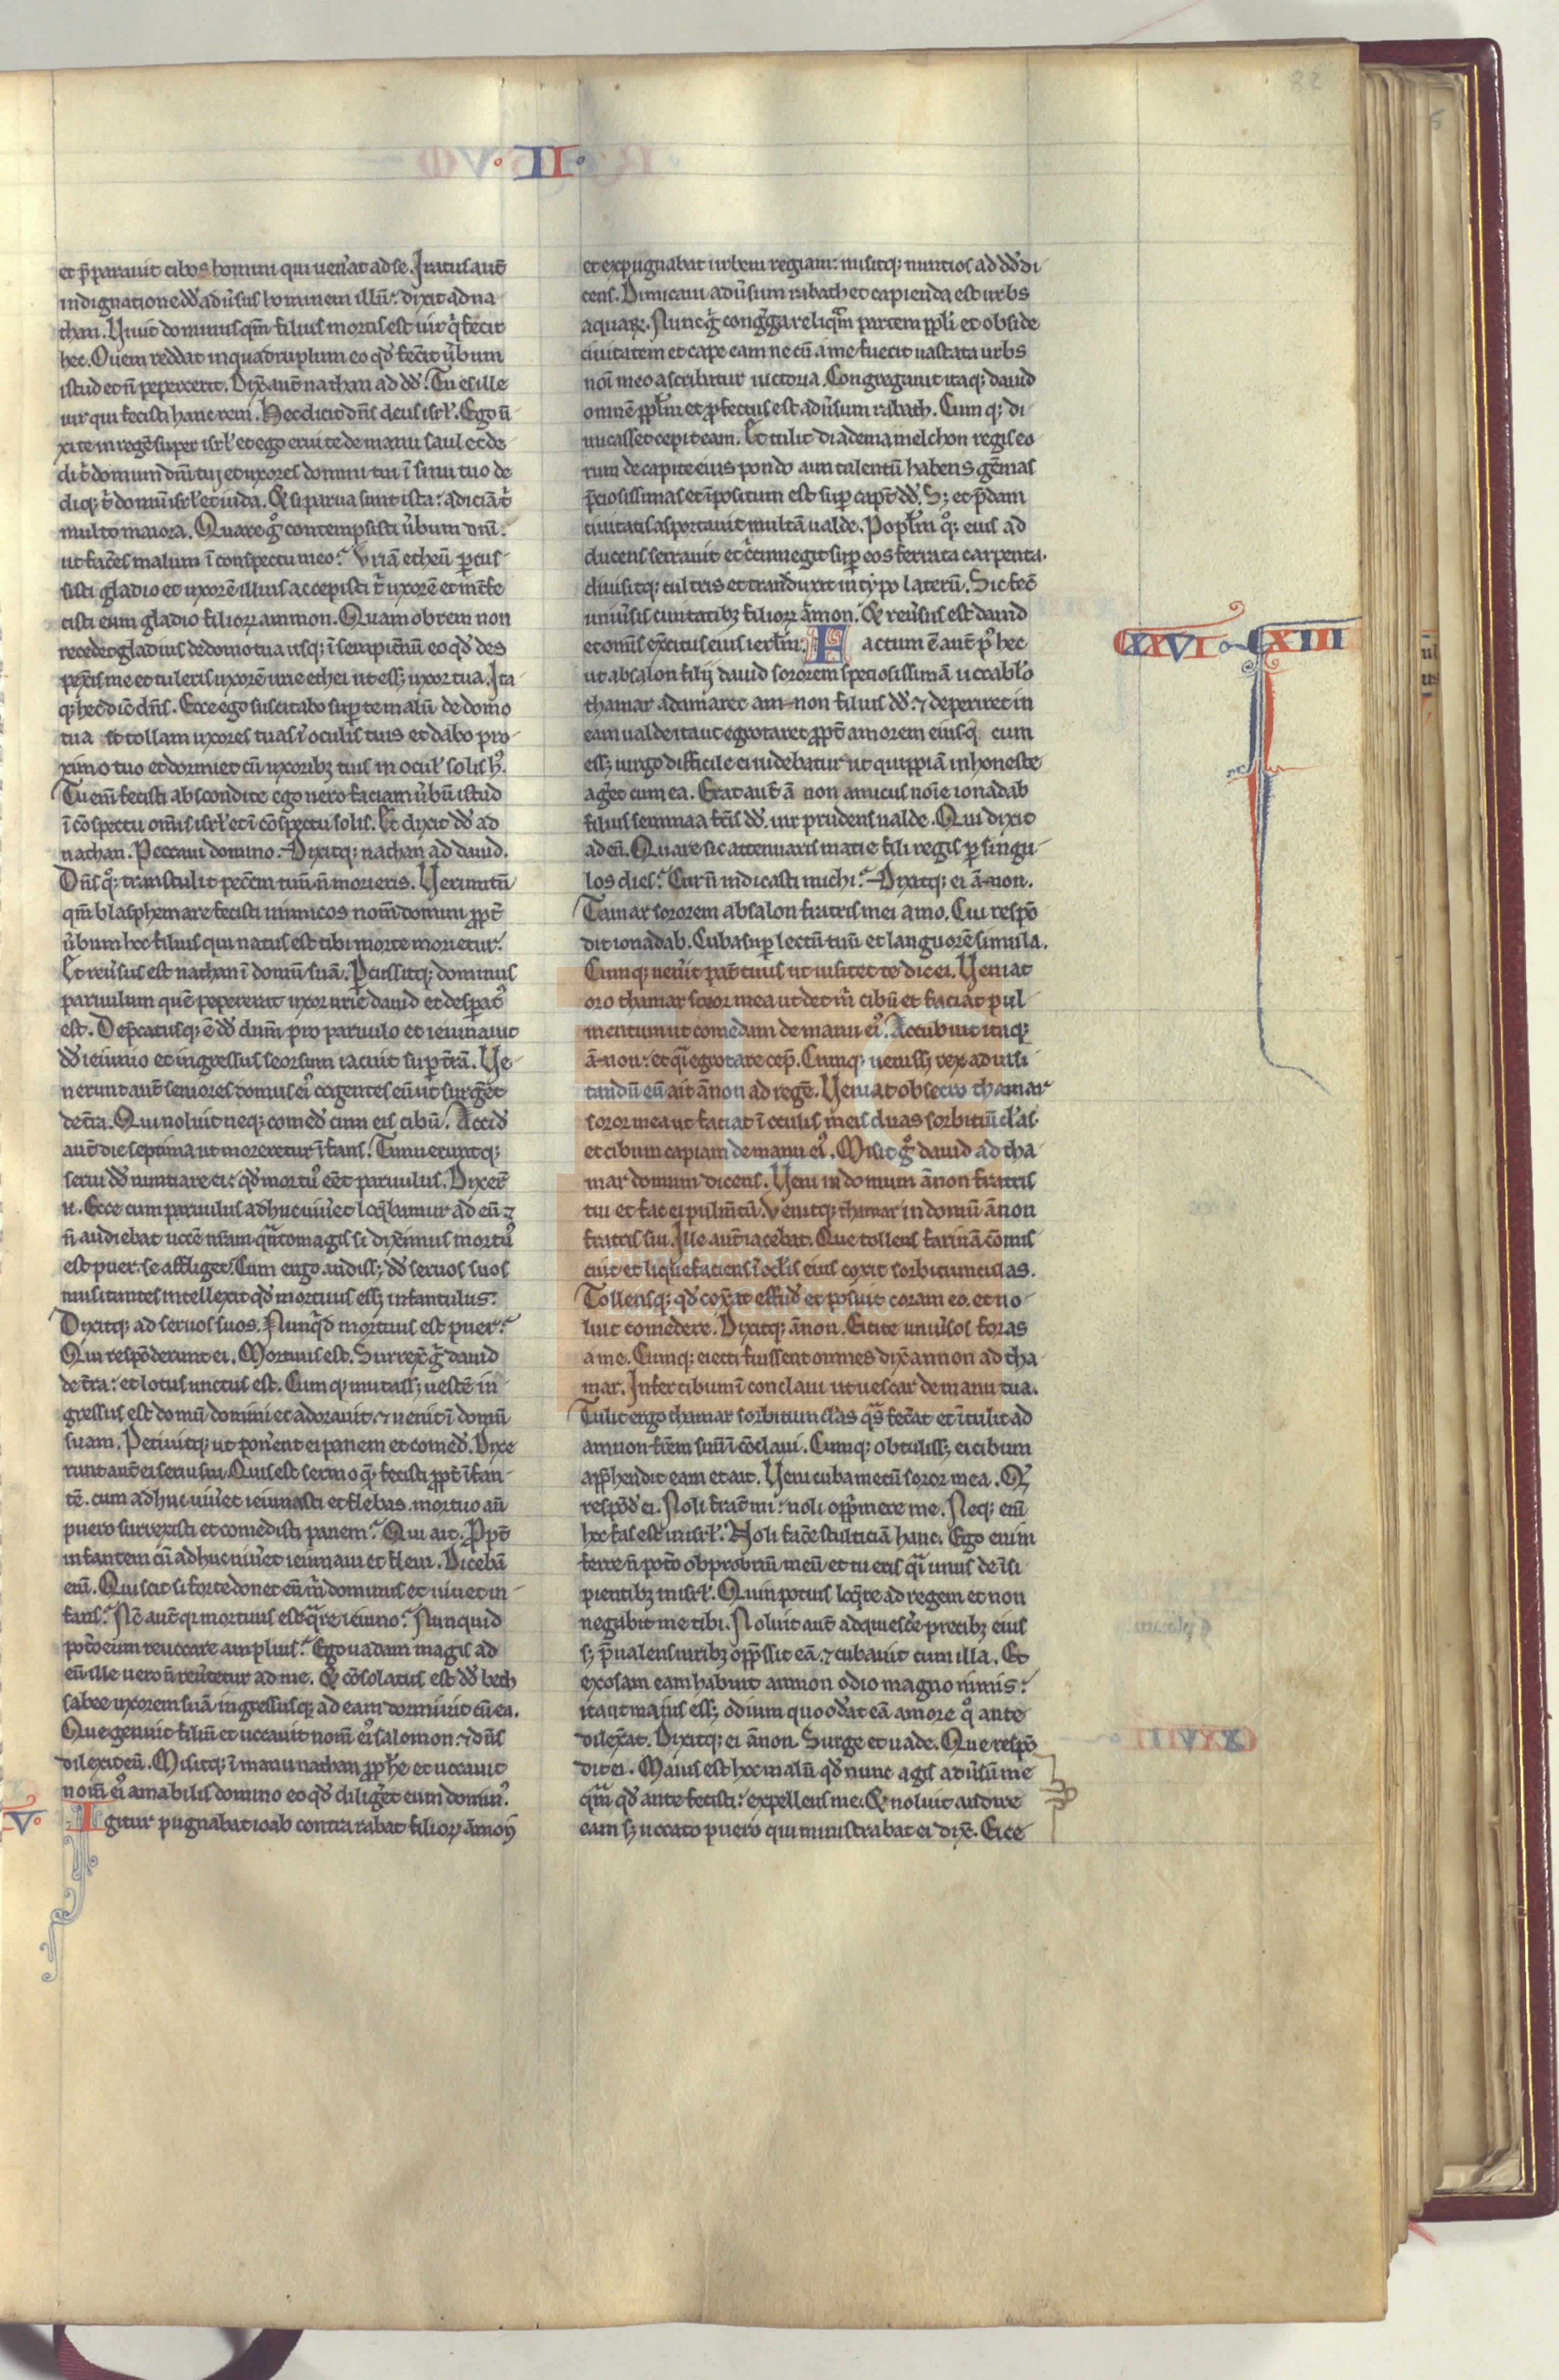 ·II·
et p̄parauit cibos homini qui uen̄at ad se. Iratus aut̄
indignatione dd̄ adūsus hominem illū: dixit ad na
than. Viuit dominus qm̄ filius mortis est uir q̇ fecit
hec. Ouem reddat in quadruplum eo qd̄ fec̄it ūbum
istud et n̄ pepercerit. Dix̄ aut̄ nathan ad dd̄. Tu es ille
uir qui fecisti hanc rem. Hec dicit dn̄s deus isrl̄. Ego ū
xi te in regē super isrl̄ et ego erui te de manu saul et de
di t̄ domum dn̄i tui et uxores domini tui ī sinu tuo de
diq; t̄ domū isrl̄ et iuda. Et si parua sunt ista: adiciā t̄
multo maiora. Quare gͦ contempsisti ūbum dn̄i.
ut fac̄es malum ī conspectu meo? Vriā etheū p̄cus
sisti gladio et uxorē illius accepisti t̄ uxorē et int̄fe
cisti eum gladio filioꝝ ammon. Quam obrem non
recedet gladius de domo tua usq; ī sempit̄nū eo qd̄ des
pex̄is me et tuleris uxorē urie ethei ut ess; uxor tua. Ita
q; hec dic̄ dn̄s. Ecce ego suscitabo sup te malū de domo
tua et tollam uxores tuas ī oculis tuis et dabo pro
ximo tuo et dormiet cū uxoribꝫ tuis in ocul̄ solis h᾿.
Tu em̄ fecisti abscondite ego uero faciam ūbū istud
ī cōspectu om̄is isrl̄ et ī cōspectu solis. Et dixit dd̄ ad
nathan. Peccaui domino. Dixitq; nathan ad dauid.
Dn̄s qͦ; transtulit pecc̄m tuū n̄ morieris. Verumtn̄
qm̄ blasphemare fecisti inimicos nom̄ domini ꝓpt̄
ūbum hoc filius qui natus est tibi morte morietur.
Et reūsus est nathan ī domū suā. Percussitq; dominus
paruulum quē pepererat uxor urie dauid et despat᾿
est. Dep̄catusq; ē dd̄ dnm̄ pro paruulo et ieiunauit
dd̄ ieiunio et ingressus seorsum iacuit sup t̄rā. Ve
nerunt aut̄ seniores domus ei᾿ cogentes eū ut surḡet
de t̄ra. Qui noluit neq; comed̄ cum eis cibū. Accid̄
aut̄ die septima ut moreretur īfans. Timueruntq;
serui dd̄ nuntiare ei: qd̄ mortu᾿ eēt paruulus. Dixer̄
ū. Ecce cum paruulus adhuc uiūet loq̄bamur ad eū ⁊
n̄ audiebat uocē nr̄am q̄nto magis si dix̄imus mortu᾿
est puer. se affliget. Cum ergo audiss; dd̄ seruos suos
musitantes intellexit qd̄ mortuus ess; infantulus:
Dixitq; ad seruos suos. Nunq̇d mortuus est puer?
Qui respōderunt ei. Mortuus est. Surrex̄ ḡ dauid
de t̄ra: et lotus unctus est. Cumq; mutass; uestē in
gressus est domū domini et adorauit ⁊ uenit ī domū
suam. Petiuitq; ut pon̄ent ei panem et comed̄. Dixe
runt aut̄ ei serui sui. Quis est sermo q̄; fecisti ꝓpt̄ īfan
tē. cum adhuc uiūet ieiunasti et flebas. mortuo aū
puero surrexisti et comedisti panem? Qui ait. Ppt̄
infantem cū adhuc uiūet ieiunaui et fleui. Dicebā
em̄. Qui scit si forte donet eū m̄ dominus et uiuet in
fans? Nc̄ aut̄ qr mortuus est q̄re ieiuno? Nunquid
pot̄o eum reuocare amplius? Ego uadam magis ad
eū ille uero n̄ reūtetur ad me. Et cōsolatus est dd̄ beth
sabee uxorem suā ingressusq; ad eam dormiuit cū ea.
Que genuit filiū et uocauit nom̄ ei᾿ salomon. ⁊ dn̄s
dilexit eū. Misitq; ī manu nathan ꝓph̄e et uocauit
nom̄ ei᾿ amabilis domino eo qd̄ diliḡet eum domin᾿.
V· Igitur pugnabat ioab contra rabat filioꝝ āmon
et expugnabat urbem regiam: misitq; nuntios ad dd̄ di
cens. Dimicaui adūsum rabath et capienda est urbs
aquaꝝ. Nunc ḡ conḡga reliq̄m partem ppl̄i et obside
ciuitatem et cape eam ne cū a me fuerit uastata urbs
noī meo ascribatur uictoria. Congregauit itaq; dauid
omnē ppl̄m et profectus est adūsum rabath. Cumq; di
micasset cepit eam. Et tulit diadema melchon regis eo
rum de capite eius pondo auri talentū habens gēmas
p̄ciosissimas et īpositum est sup capt̄ dd̄. S; et p̄dam
ciuitatis asportauit multā ualde. Popl̄m qͦ; eius ad
ducens serrauit et c̄cumegit sup eos ferrata carpenta.
diuisitq; cultris et transduxit in typo laterū. Sic fec̄
uniūsis ciuitatibꝫ filioꝝ āmon. Et reūsus est dauid
et omīs ex̄citus eius ierl̄m: Factum ē aut̄ p᾿ hec CXXVI CXIII
ut absalon filij dauid sororem speciosissimā uocabl̄o
thamar adamaret am-non filius dd̄ ⁊ deperiret in
eam ualde ita ut egrotaret ꝓpt̄ amorem eius q̄ cum
ess; uirgo difficile ei uidebatur ut quippiā inhoneste
aḡet cum ea. Erat aut̄ ā non amicus noīe ionadab
filius semmaa fr̄is dd̄. uir prudens ualde. Qui dixit
ad eū. Quare sic attenuaris macie fili regis p singu
los dies? Cur n̄ indicasti michi? Dixitq; ei ā-non.
Tamar sororem absalon fratris mei amo. Cui respō
dit ionadab. Cuba sup lectū tuū et languorē simula.
Cumq; uen̄it pat̄ tuus ut uisitet te dic ei. Veniat
oro thamar soror mea ut det m̄ cibū et faciat pul
mentum ut comedam de manu ei᾿. Accubuit itaq;
ā-non: et q̄i egrotare cep̄. Cumq; ueniss; rex ad uisi
tandū eū ait ānon ad regē. Veniat obsecro thamar
soror mea ut faciat ī oculis meis duas sorbitiūcl̄as.
et cibum capiam de manu ei᾿. Misit gͦ dauid ad tha
mar domum dicens. Veni in domum ānon fratris
tui et fac ei pulm̄tū. Venitq; thamar in domū ānon
fratris sui. Ille aut̄ iacebat. Que tollens farinā cōmis
cuit et liquefaciens ī ocl̄is eius coxit sorbitiunculas.
Tollensq; qd̄ cox̄at effud̄ et posuit coram eo. et no
luit comedere. Dixitq; ānon. Eicite uniūsos foras
a me. Cumq; eiecti fuissent omnes dix̄ amnon ad tha
mar. Infer cibum ī conclaui ut uescar de manu tua.
Tulit ergo thamar sorbitiuncl̄as q̄s fec̄at et ītulit ad
amnon fr̄em suū ī cōclaui. Cumq; obtuliss; ei cibum
app̄hendit eam et ait. Veni cuba mecū soror mea. Q̄
respōd̄ ei. Noli frat̄ mi: noli opp̄mere me. Neq; eni
hoc fas est in isrl̄. Noli fac̄e stulticiā hanc. Ego enim
ferre n̄ pot̄o obprobriū meū et tu eris q̄i unus de īsi
pientibꝫ in isrl̄. Quin potius loq̄re ad regem et non
negabit me tibi. Noluit aut̄ adquiesc̄e precibꝫ eius
s; p̄ualens uiribꝫ opp̄ssit eā. ⁊ cubauit cum illa. Et
exosam eam habuit amnon odio magno nimis:
ita ut maius ess; odium quo od̄at eā amore qͦ ante
dilex̄at. Dixitq; ei ānon. Surge et uade. Que respō
dit ei. Maius est hoc malū qd̄ nunc agis adūsū me
qm̄ qd̄ ante fecisti: expellens me. Et noluit audire
eam s; uocato puero qui ministrabat ei dix̄. Eice